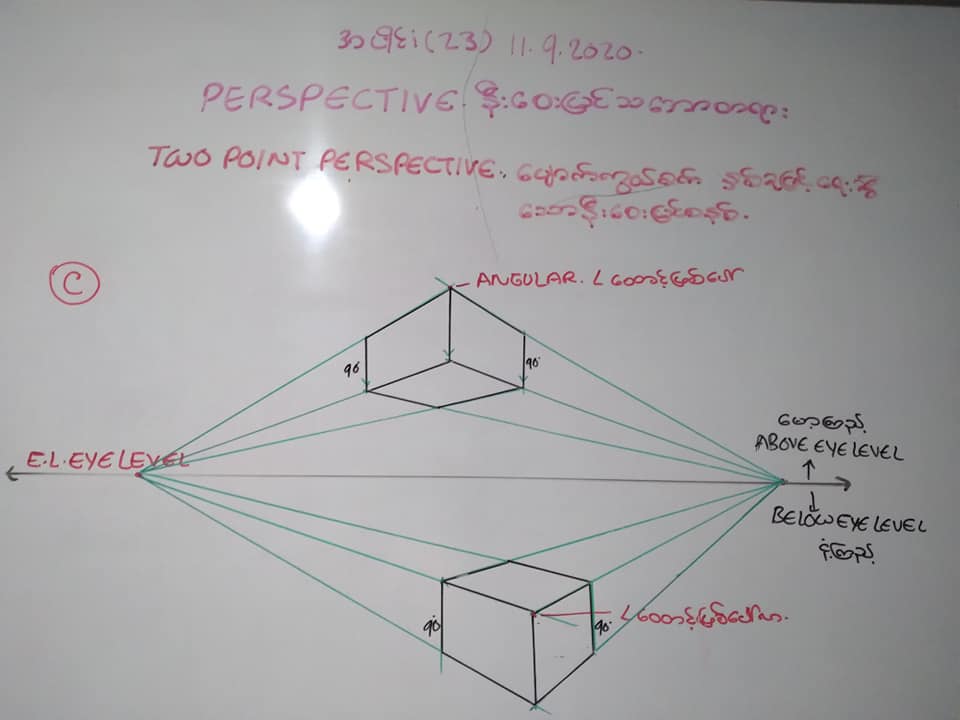 အပိုင်း(23) 11.9.2020.
PERSPECTIVE. နီးဝေးမြင်သဘောတရား
TWO POINT PERSPECTIVE. ပျောက်ကွယ်မှတ် နှစ်ချက်ဖြင့် ရေးဆွဲ
သောနီးဝေးမြင်စနစ်.
C
ANGULAR. L ထောင့်ဖြစ်ပေါ်
90°
90°
E.L. EYE LEVEL
မော့ကြည့်
ABOVE EYE LEVEL
BELOW EYE LEVEL
ငုံ့ကြည့်
90°
90°
L ထောင့်ဖြစ်ပေါ်